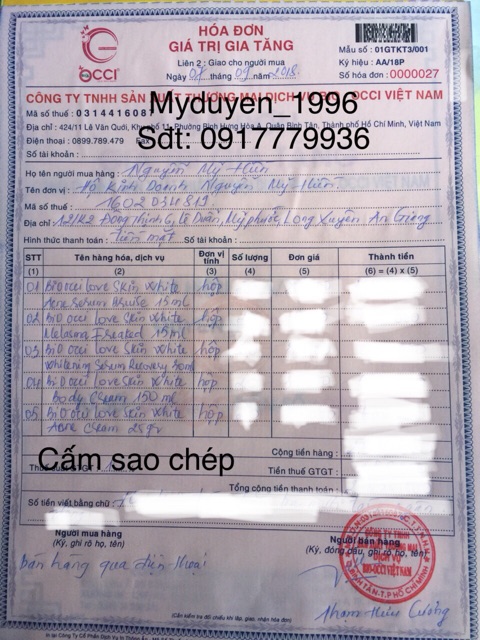 HÓA ĐƠN
GIÁ TRỊ GIA TĂNG
Liên 2: Giao cho người mua
Ngày 07 tháng 09 năm 2018
Mẫu số : 01GTKT3/001
Ký hiệu : AA/18P
Số hóa đơn : 0000027
OCCI
CÔNG TY TNHH SẢN XUẤT THƯƠNG MẠI DỊCH VỤ OCCI VIỆT NAM
Myduyen_1996
Mã số thuế : 0314416087
Sdt: 0917779936
Địa chỉ : 424/11 Lê Văn Quới, Khu phố Phường Bình Hưng Hòa A, Quận Bình Tân, Thành phố Hồ Chí Minh, Việt Nam
Điện thoại : 0899.789.479 Fax
Số tài khoản :
Họ tên người mua hàng : Nguyễn Mỹ Hiền
Tên đơn vị : Hộ Kinh Doanh Nguyễn Mỹ Hiền
Mã số thuế : 1602034819
Địa chỉ : 12/K2 Đông Thịnh 6, Lê Duẩn, Mỹ phước, Long Xuyên An Giang
Hình thức thanh toán : tiền mặt Số tài khoản :
STT Tên hàng hóa, dịch vụ Đơn vị tính Số lượng Đơn giá Thành tiền
(1) (2) (3) (4) (5) (6) = (4) x (5)
01 BIO OCCI Love Skin White hộp
Acne Serum 15 ml
02 BIO OCCI Love Skin White hộp
Melasma Treated 15ml
03 BIO OCCI Love Skin White hộp
Whitening Serum Recovery
04 BIO OCCI Love Skin White hộp
Body Cream 150 ml
05 BIO OCCI Love Skin White hộp
Acne Cream 25gr
Cộng tiền hàng :
Cấm sao chép
Thuế suất GTGT Tiền thuế GTGT :
Tổng cộng tiền thanh toán :
Số tiền viết bằng chữ :
Người mua hàng
(Ký, ghi rõ họ, tên)
Người bán hàng
(Ký, đóng dấu, ghi rõ họ, tên)
bán hàng qua điện thoại
CÔNG TY TNHH
DỊCH VỤ
VIỆT NAM
Q.BÌNH TÂN-T.P HỒ CHÍ MINH
Phạm Hữu Cường
(Cần kiểm tra đối chiếu khi lập, giao, nhận hóa đơn)